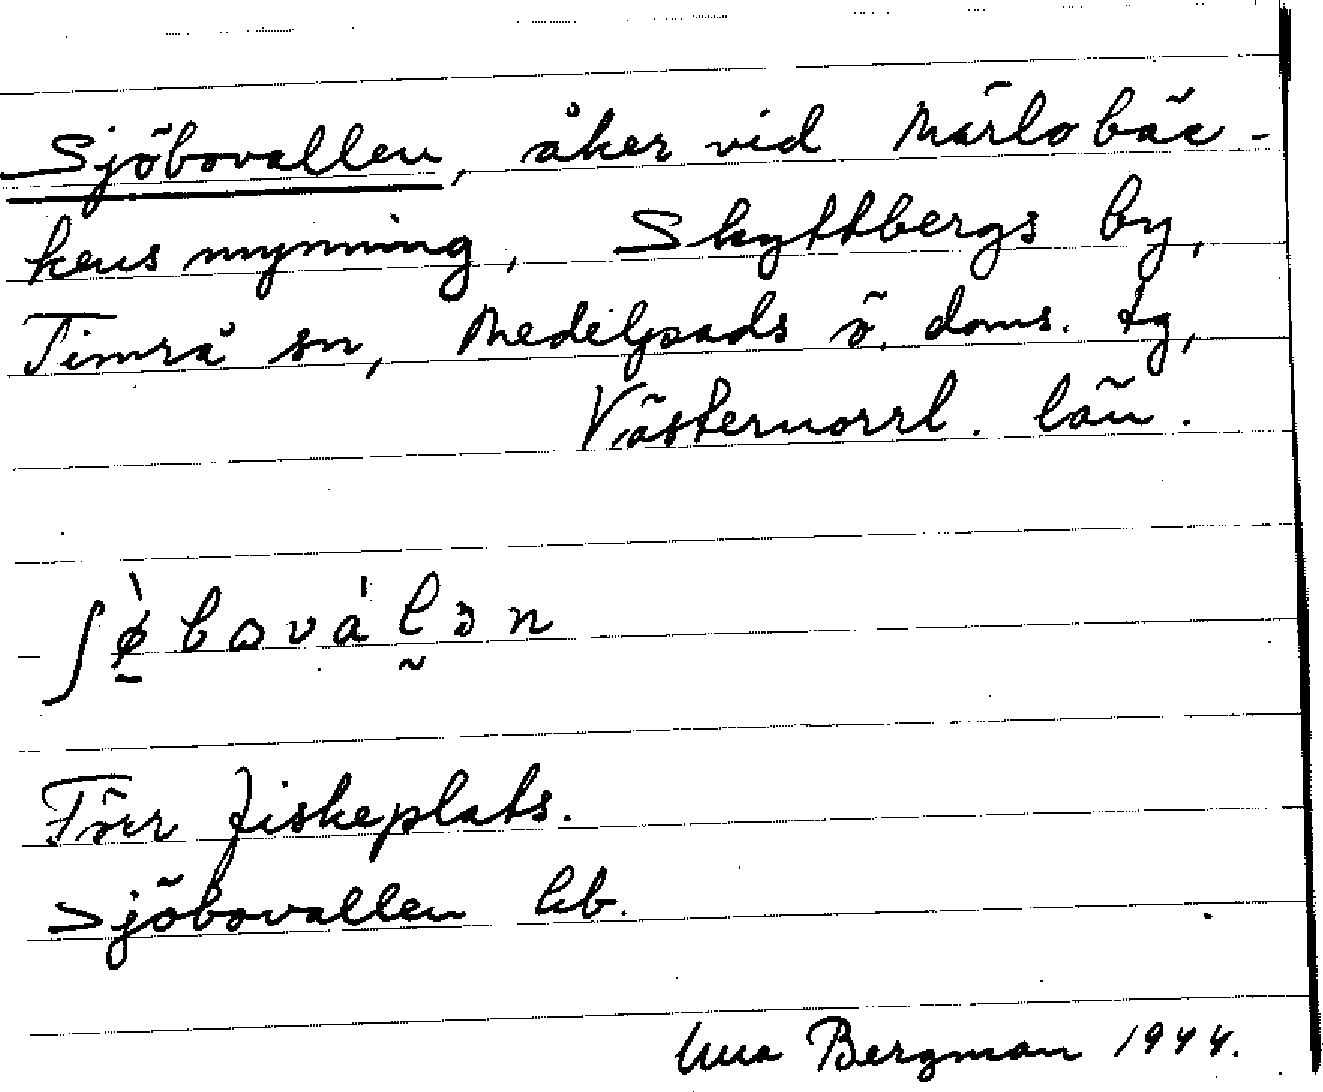 Sjöbovallen, åker vid Märlobäc-
kens mynning, Skyttbergs by,
Timrå sn, Medelpads ö. doms. tg,
Västernorrl. län.
ʃø̠̀bɷválə̰n
Förr fiskeplats.
Sjöbovallen lkb.
Una Bergman 1944.